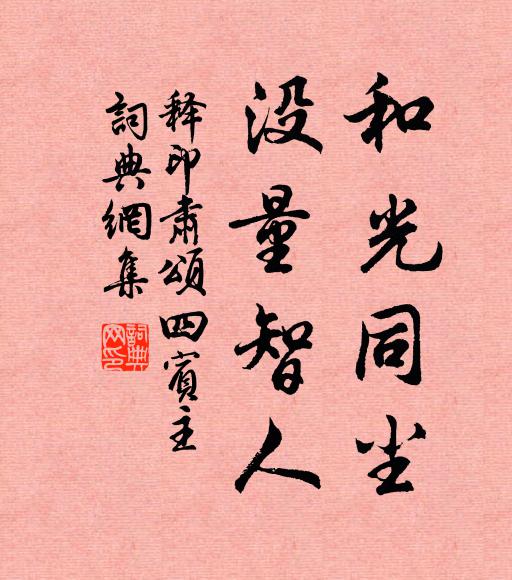 和光同尘
没量智人
释印肃颂四賓主
詞典網集
詞典网印